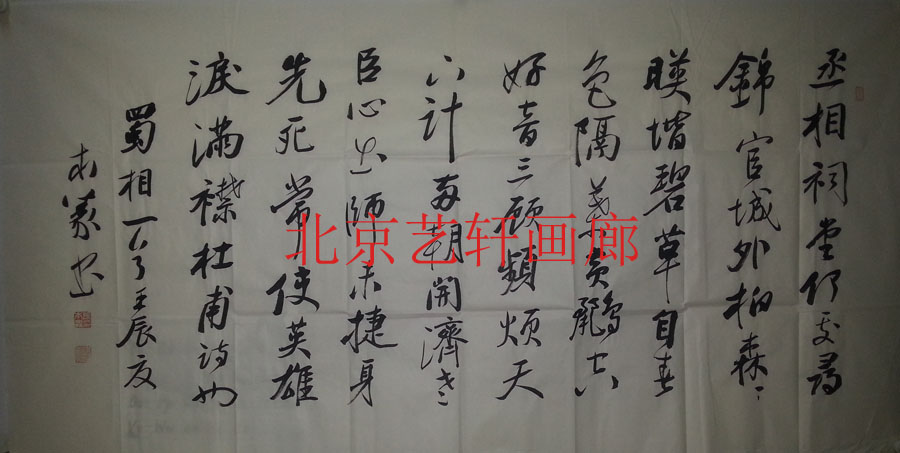 丞相祠堂何处尋
錦官城外柏森〻
暎堦碧草自春
色隔葉黄鸝空
好音三顧頻煩天
下計兩朝開濟老
臣心出師未捷身
先死常使英雄
淚滿襟杜甫诗
蜀相一首壬辰夏
书
北京艺轩画廊